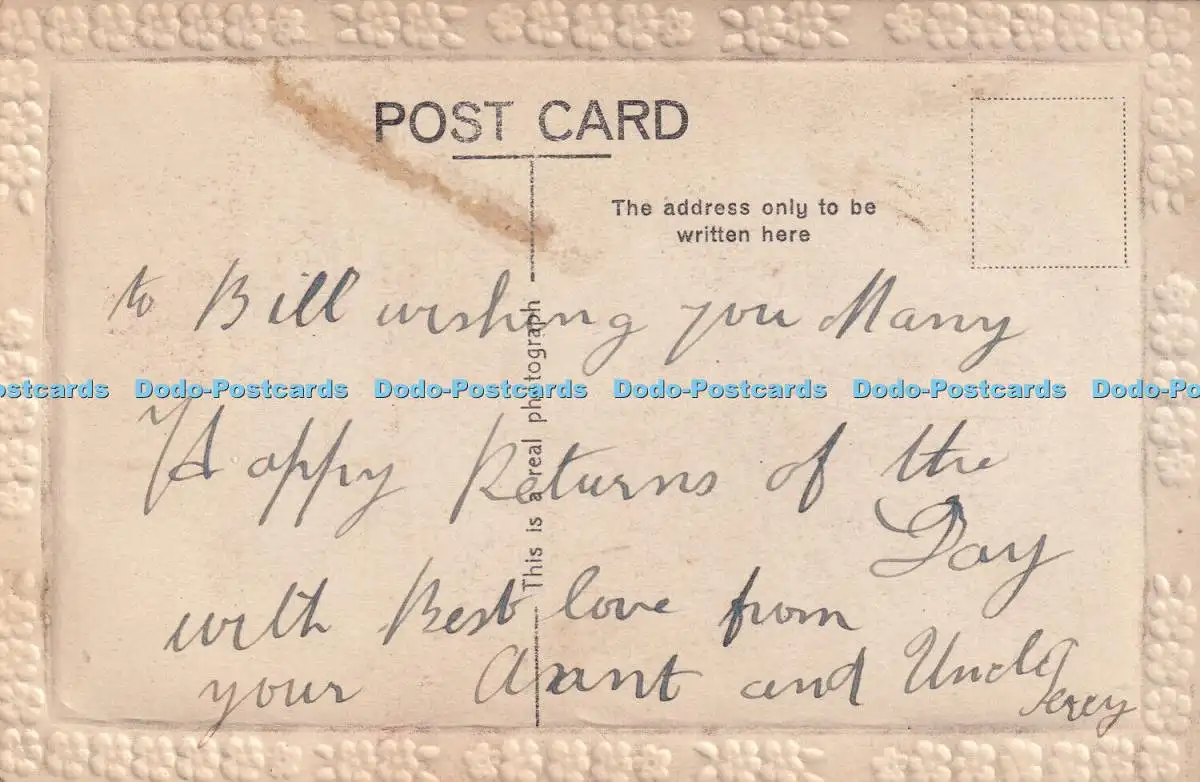 POST CARD
The address only to be
written here
This is a real photograph
to Bill wishing you Many
Happy Returns of the
Day
with Best love from
your Aunt and Uncle
Percy
ostcards Dodo-Postcards Dodo-Postcards Dodo-Postcards Dodo-Postcards Dodo-Pos